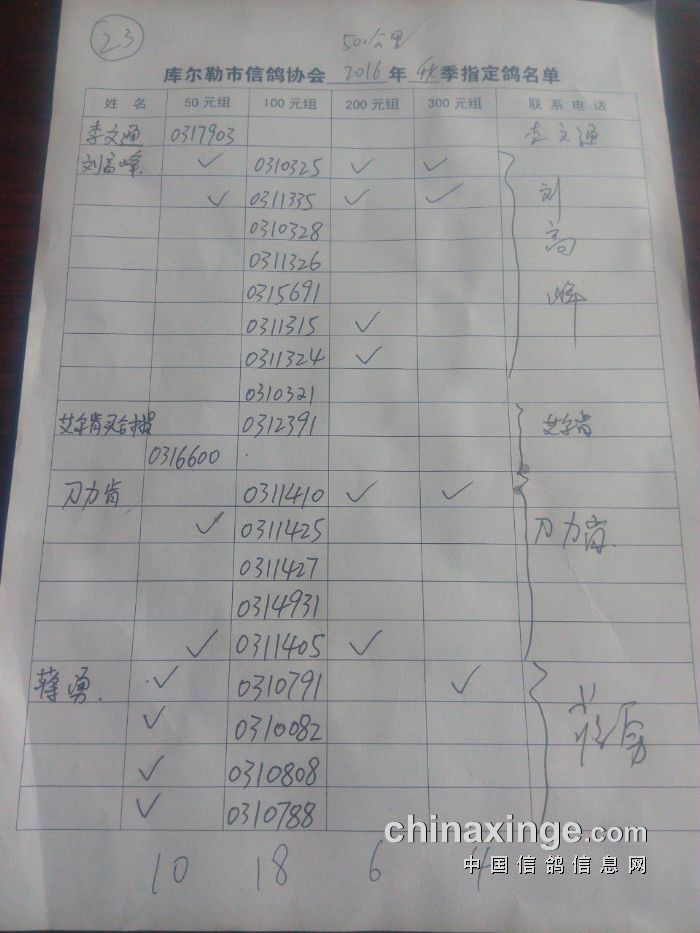 23
500公里
库尔勒市信鸽协会 2016 年 秋季指定鸽名单
姓 名 50元组 100元组 200元组 300元组 联系电话
李文通 0317903 李文通
刘高峰 ✓ 0310325 ✓ ✓
✓ 0311335 ✓ ✓ 刘
0310328 高
0311326
0315691 峰
0311315 ✓
0311324 ✓
0310321
艾尔肯买合 0312391 艾尔肯
0316600
刀力肯 0311410 ✓ ✓
✓ 0311425 刀力肯
0311427
0314931
✓ 0311405 ✓
蒋勇 ✓ 0310791 ✓
✓ 0310082 蒋勇
✓ 0310808
✓ 0310788
chinaxinge.com
10 18 6 4 中国信鸽信息网